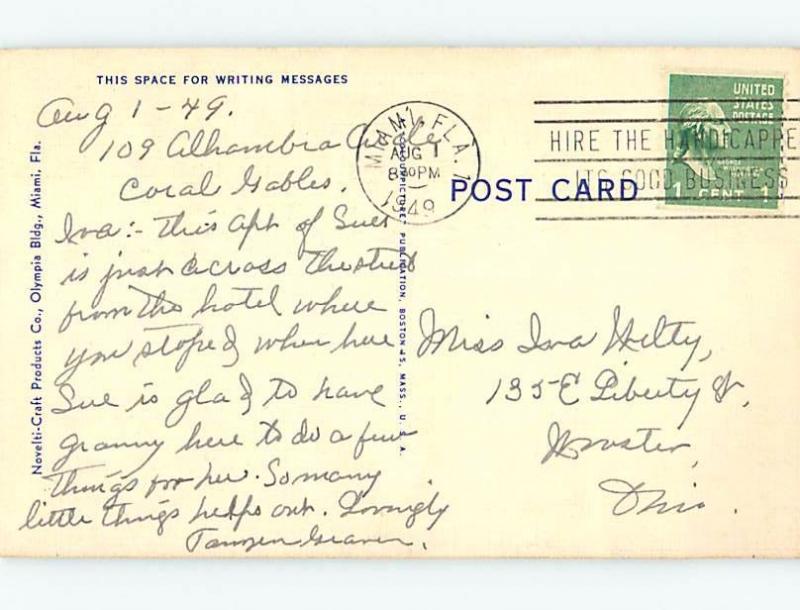 THIS SPACE FOR WRITING MESSAGES
Aug 1-49.
109 Alhambra Circle
Coral Gables.
Iva:- This apt of Sues
is just across the street
from the hotel where
you stoped when here
Sue is glad to have
granny here to do a few
things for her. So many
little things helps out. Lovingly
Novelti-Craft Products Co., Olympia Bldg., Miami, Fla.
PUBLICATION, BOSTON 45, MASS., U. S. A.
MIAMI, FLA. 1
AUG 1
8 30 PM
1949
HIRE THE HANDICAPPE
ITS GOOD BUSINESS
UNITED
STATES
POSTAGE
1 CENT 1
POST CARD
Miss Iva Hilty,
135 E Liberty St,
Wooster,
Ohio.